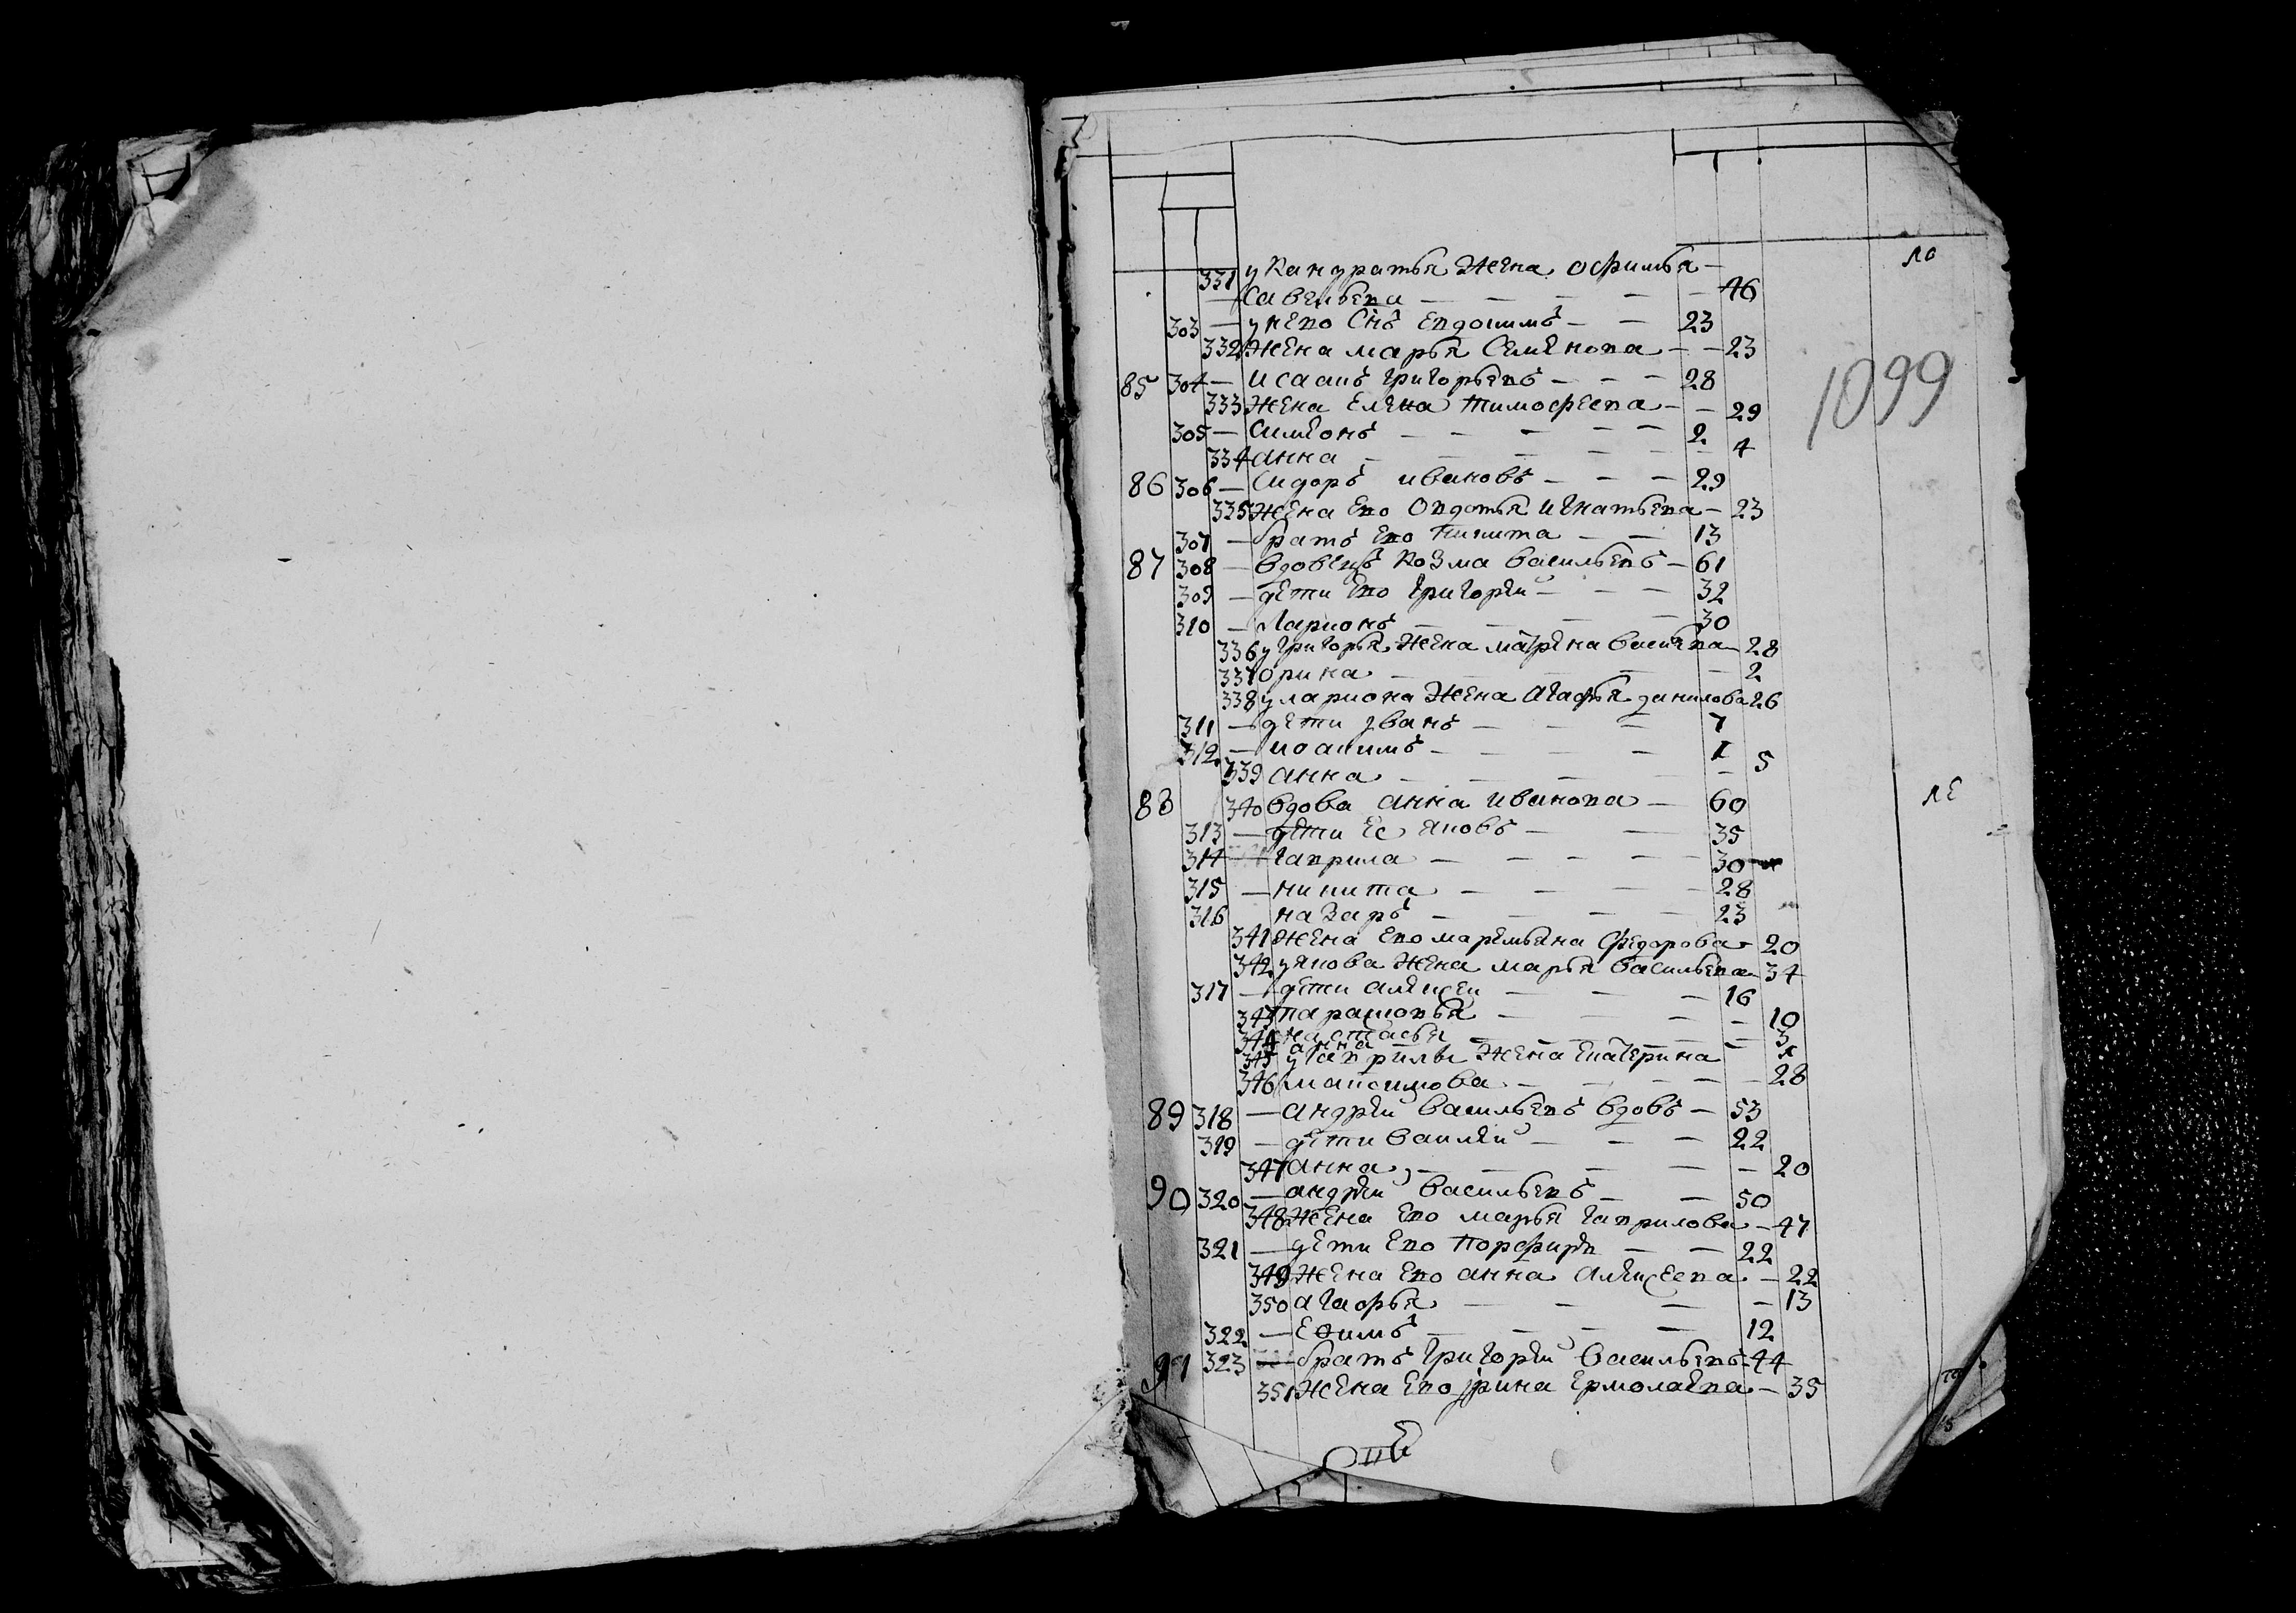 331 у Кандратья жена Офимья —
— Савельева — — — — — 46
ло
303 — у него Снъ Евдокимъ — — 23
332 жена марья Семенова — — 23
85 304 — Исаакъ Григорьевъ — — — 28
1099
333 жена Елена тимофеева — — 29
305 — Симеонъ — — — — — 2
334 анна — — — — — — 4
86 306 — Сидоръ ивановъ — — — 29
335 жена Ево Овдотья Игнатьева — 23
307 — братъ Ево Никита — — 13
87 308 — вдовецъ Козма васильевъ — 61
309 — дети Ево Григорей — — — 32
310 — Ларионъ — — — — 30
336 у Григорья жена матрена васильева — 28
337 орина — — — — 2
338 у лариона жена Агафья данилова 26
311 — дети иванъ — — — 7
312 — иоакимъ — — — — 1
339 анна — — — — 5
88 340 вдова анна иванова — 60
ле
313 — дети Ее яковъ — — 35
314 гаврила — — — — — 30
315 — никита — — — — 28
316 назаръ — — — — 23
341 жена Ево маремьяна Федорова — 20
342 у якова жена марья васильева — 34
317 — дети алексеи — — — 16
343 парасковья — — — — 10
344 настасья — — — — 3
345 анна
у гаврилы жена Екатерина
346 максимова — — — — — 28
89 318 — андрей васильевъ вдовъ — 53
319 — дети василей — — — 22
347 анна — — — — — 20
90 320 — андрей васильевъ — — 50
348 жена Ево марья гаврилова — 47
321 — дети Ево Порфирей — — 22
349 жена Ево анна алексеева — 22
350 агафья — — — — 13
322 — Ефимъ — — — — 12
91 323 братъ Григорей васильевъ — 44
351 жена Ево ирина Ермолаева — 35